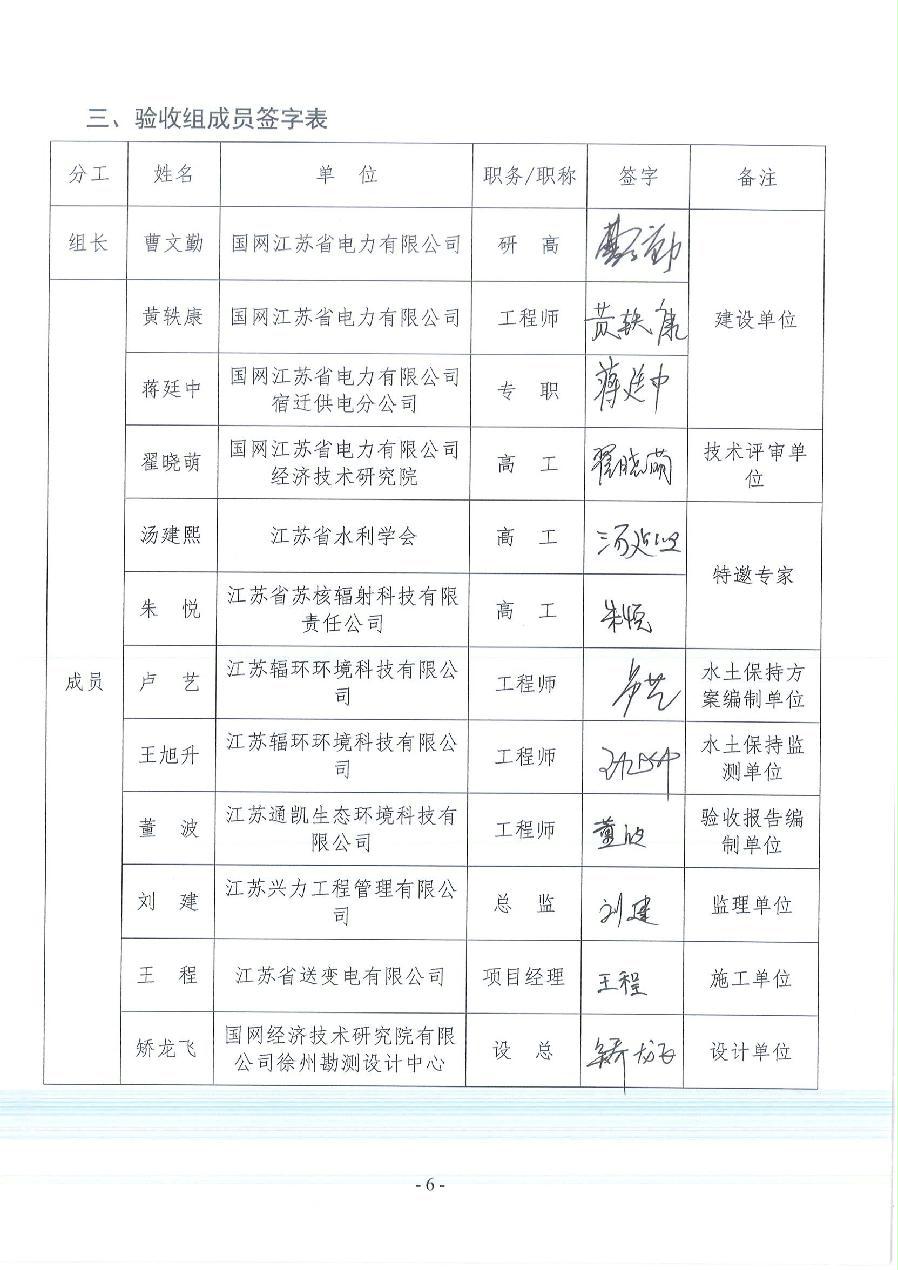 三、验收组成员签字表
分工 姓名 单 位 职务/职称 签字 备注
组长 曹文勤 国网江苏省电力有限公司 研 高 曹文勤
黄轶康 国网江苏省电力有限公司 工程师 黄轶康 建设单位
蒋廷中 国网江苏省电力有限公司
宿迁供电分公司 专 职 蒋廷中
翟晓萌 国网江苏省电力有限公司
经济技术研究院 高 工 翟晓萌 技术评审单
位
汤建熙 江苏省水利学会 高 工 汤建熙
特邀专家
朱 悦 江苏省苏核辐射科技有限
责任公司 高 工 朱悦
成员
卢 艺 江苏辐环环境科技有限公
司 工程师 卢艺 水土保持方
案编制单位
王旭升 江苏辐环环境科技有限公
司 工程师 王旭升 水土保持监
测单位
董 波 江苏通凯生态环境科技有
限公司 工程师 董波 验收报告编
制单位
刘 建 江苏兴力工程管理有限公
司 总 监 刘建 监理单位
王 程 江苏省送变电有限公司 项目经理 王程 施工单位
矫龙飞 国网经济技术研究院有限
公司徐州勘测设计中心 设 总 矫龙飞 设计单位
- 6 -